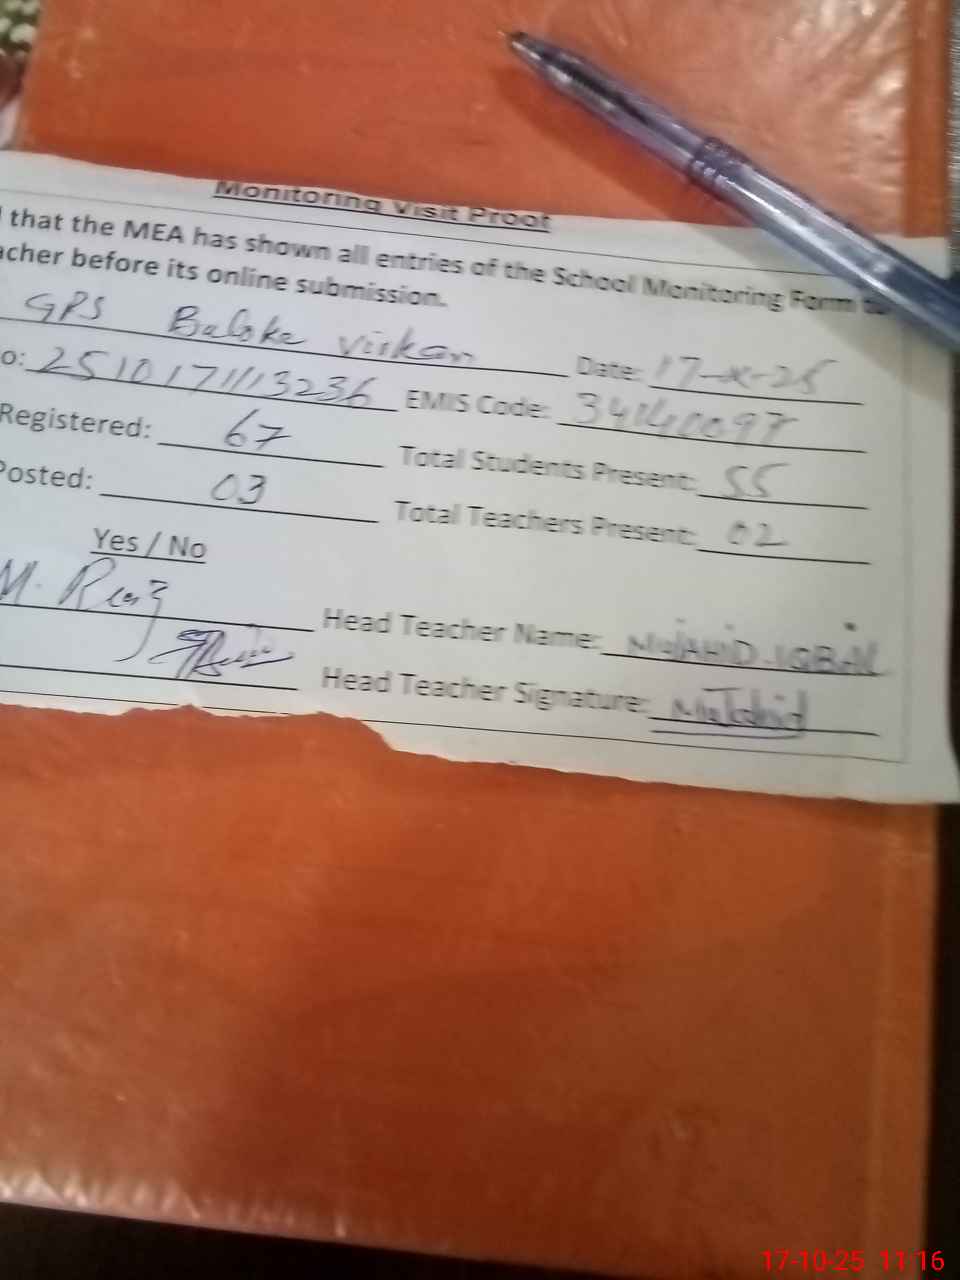 Monitoring Visit Proof
that the MEA has shown all entries of the School Monitoring Form to
acher before its online submission.
GPS Baloke virkan Date: 17-x-25
o: 2510171113236 EMIS Code: 34140097
Registered: 67 Total Students Present: 55
Posted: 03 Total Teachers Present: 02
Yes / No
M. Riaz Head Teacher Name: MUJAHID IQBAL
Head Teacher Signature: Mujahid
17-10-25 11 16